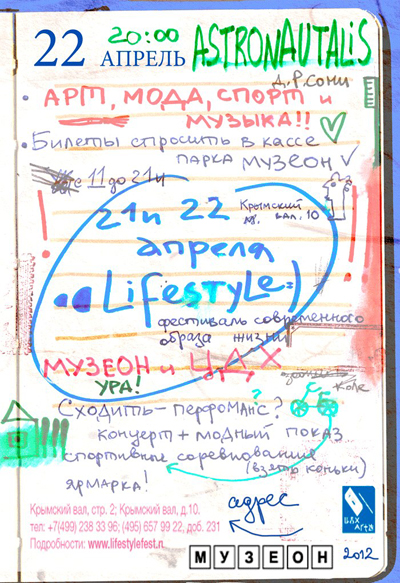 22 АПРЕЛЬ
20:00 ASTRONAUTALIS
Д.Р. СОНИ
АРТ, МОДА, СПОРТ и
МУЗЫКА!!
Билеты спросить в кассе
парка музеон
с 11 до 21ч
21 и 22
Крымский
вал, 10
апреля
Lifestyle:)
фестиваль современного
образа жизни
МУЗЕОН и ЦДХ
УРА!
Коле
Сходить - перфоманс?
?
концерт + модный показ
спортивные соревнования
(взять коньки)
ярмарка!
адрес
Крымский вал, стр. 2; Крымский вал, д.10.
тел: +7(499) 238 33 96; (495) 657 99 22, доб. 231
Подробности: www.lifestylefest.r
МУЗЕОН
2012